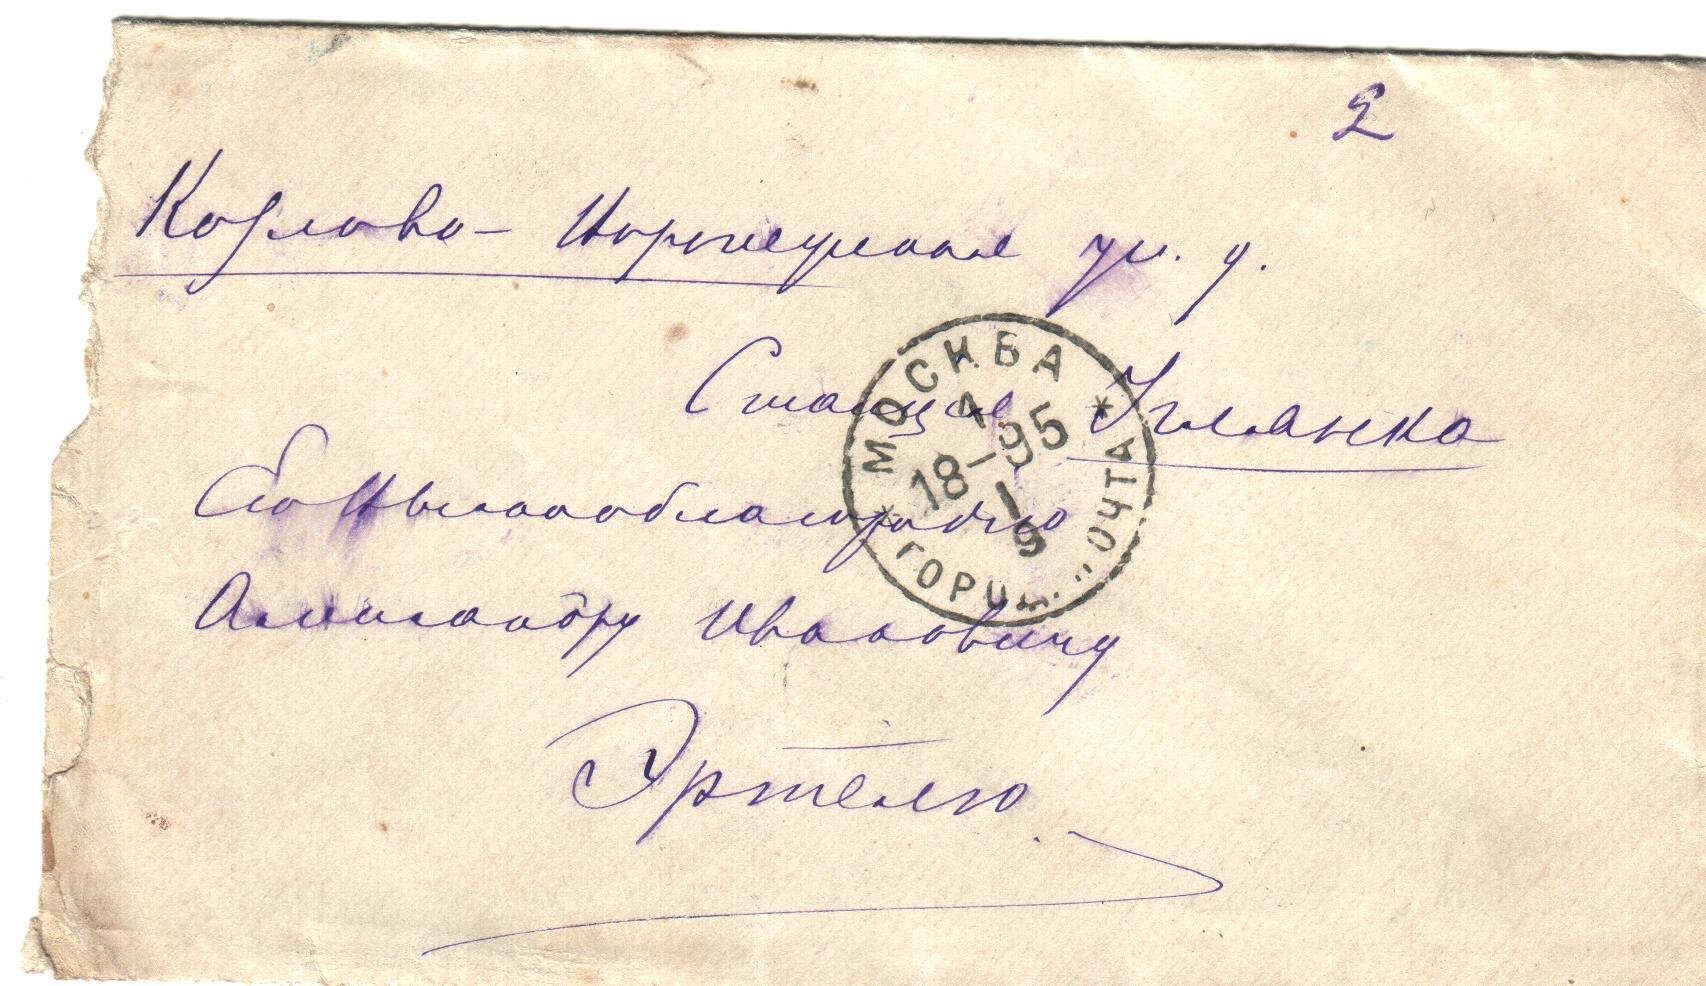 2
Козлово-Воронежская ж. д.
Станция Углянка
Его Высокоблагородию
Александру Ивановичу
Эртелю.
МОСКВА
18-95
ГОРОД. ПОЧТА